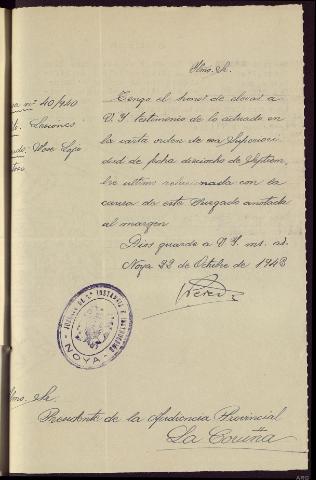 Ilmo. Sr.
Causa nº 40/940
Lesiones
Tengo el honor de elevar a
V. I. testimonio de lo actuado en
la carta orden de esa Superiori
dad de fecha dieciocho de Septiem
bre ultimo relacionada con la
causa de este Juzgado anotada
al margen
Dios guarde a V. I. ms. as.
Noya 22 de Octubre de 1943
JUZGADO DE 1ª INSTANCIA E INSTRUCCION
NOYA
Ilmo. Sr.
Presidente de la Audiencia Provincial
La Coruña